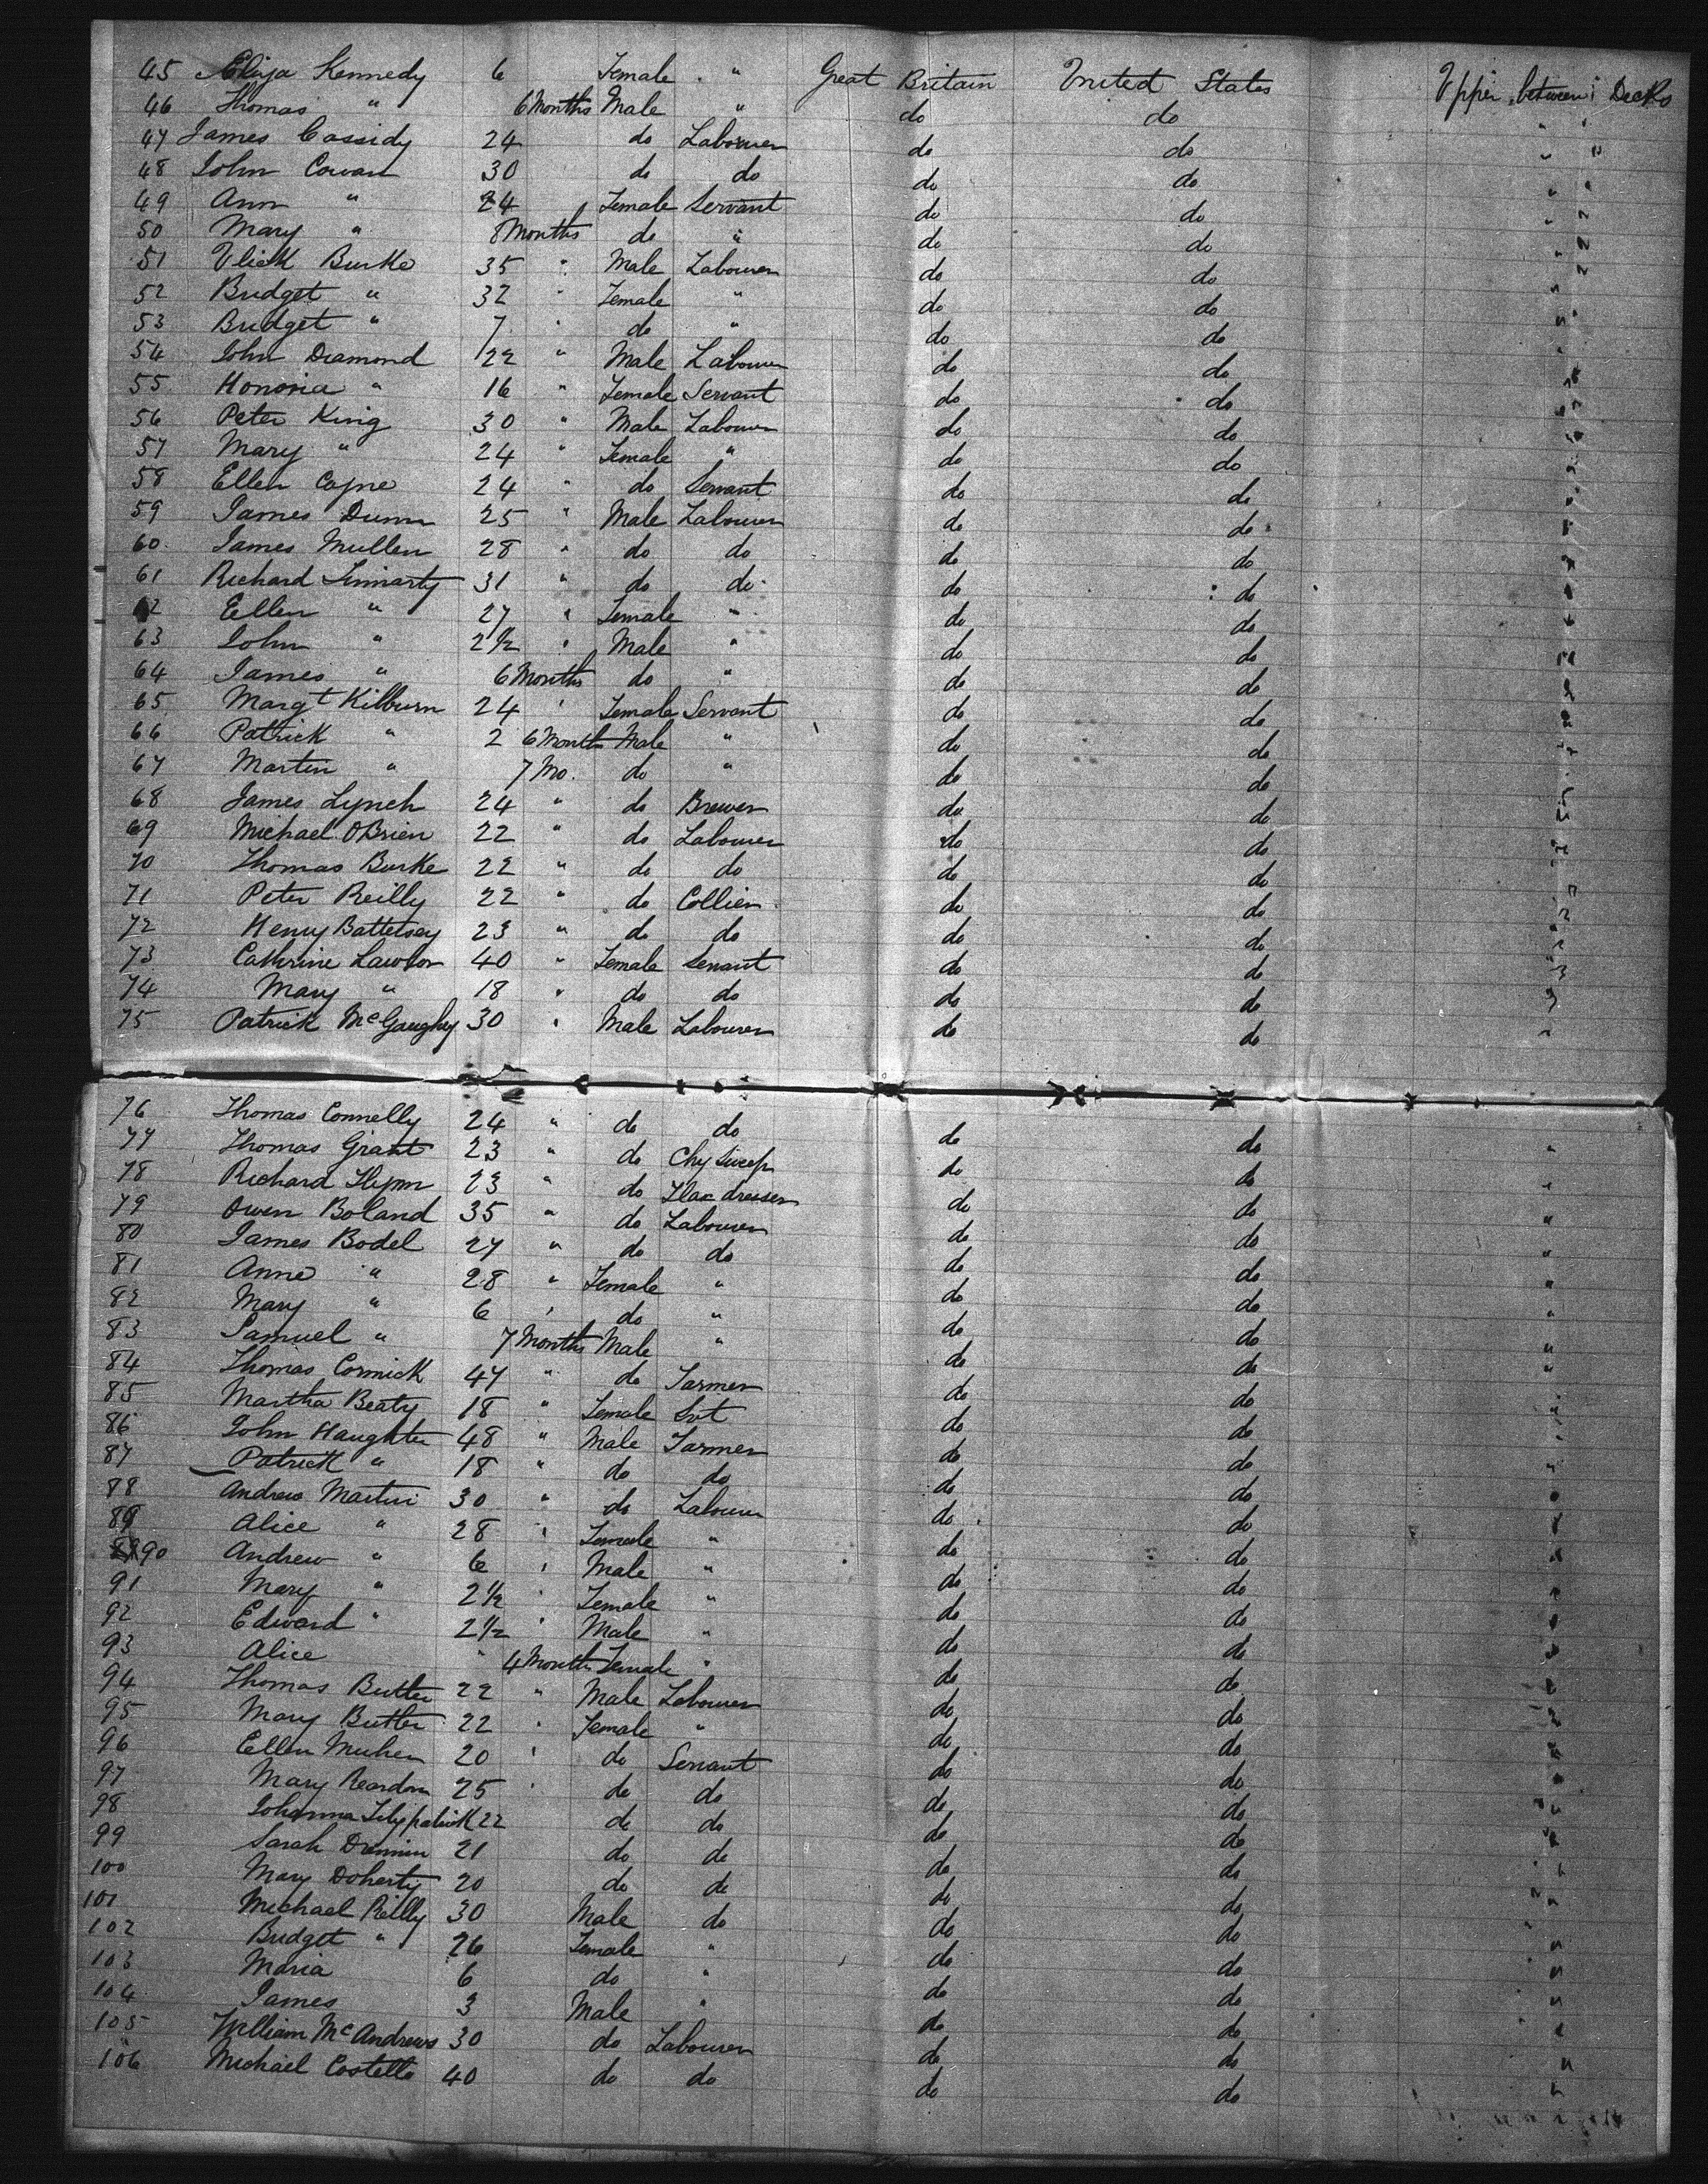 45 Eliza Kennedy 6 Female " Great Britain United States Upper between Decks
46 Thomas " 6 Months Male " do do " "
47 James Cassidy 24 do Labourer do do " "
48 John Cowan 30 do do do do " "
49 Ann " 24 Female Servant do do " "
50 Mary " 8 Months do " do do " "
51 Ulick Burke 35 " Male Labourer do do " "
52 Bridget " 32 " Female " do do "
53 Bridget " 7 " do " do do "
54 John Diamond 22 " Male Labourer do do "
55 Honoria " 16 " Female Servant do do "
56 Peter King 30 " Male Labourer do do "
57 Mary " 24 " Female " do do "
58 Ellen Coyne 24 " do Servant do do "
59 James Dunn 25 " Male Labourer do do "
60 James Mullen 28 " do do do do "
61 Richard 31 " do do do do "
62 Ellen " 27 " Female " do do "
63 John " 2½ " Male " do do "
64 James " 6 Months do " do do "
65 Margt Kilburn 24 " Female Servant do do "
66 Patrick " 2 6 Months Male " do do "
67 Martin " 7 Mo. do " do do "
68 James Lynch 24 " do Brewer do do "
69 Michael OBrien 22 " do Labourer do do "
70 Thomas Burke 22 " do do do do "
71 Peter Reilly 22 " do Collier do do "
72 Henry Battersey 23 " do do do do "
73 Cathrine Lawlor 40 " Female Servant do do "
74 Mary " 18 " do do do do "
75 Patrick McGaughey 30 " Male Labourer do do "
76 Thomas Connelly 24 " do do do do "
77 Thomas Grant 23 " do Chy Sweep do do "
78 Richard Flynn 23 " do Flax dresser do do "
79 Owen Boland 35 " do Labourer do do "
80 James Bodel 27 " do do do do "
81 Anne " 28 " Female " do do "
82 Mary " 6 " do " do do "
83 Samuel " 7 Months Male " do do "
84 Thomas Cormick 47 " do Farmer do do "
85 Martha Beaty 18 " Female Svt do do "
86 John Haughter 48 " Male Farmer do do "
87 Patrick " 18 " do do do do "
88 Andrew Martin 30 " do Labourer do do "
89 Alice " 28 " Female " do do "
90 Andrew " 6 " Male " do do "
91 Mary " 2½ " Female " do do "
92 Edward " 2½ " Male " do do "
93 Alice " 4 Months Female " do do "
94 Thomas Butler 22 " Male Labourer do do "
95 Mary Butler 22 " Female " do do "
96 Ellen 20 " do Servant do do "
97 Mary Reardon 25 " do do do do "
98 Johanna Fitzpatrick 22 do do do do "
99 Sarah 21 do do do do "
100 Mary Doherty 20 do do do do "
101 Michael Reilly 30 Male do do do "
102 Bridget " 26 Female " do do "
103 Maria 6 do " do do "
104 James 3 Male " do do "
105 William McAndrews 30 do Labourer do do "
106 Michael Costello 40 do do do do "